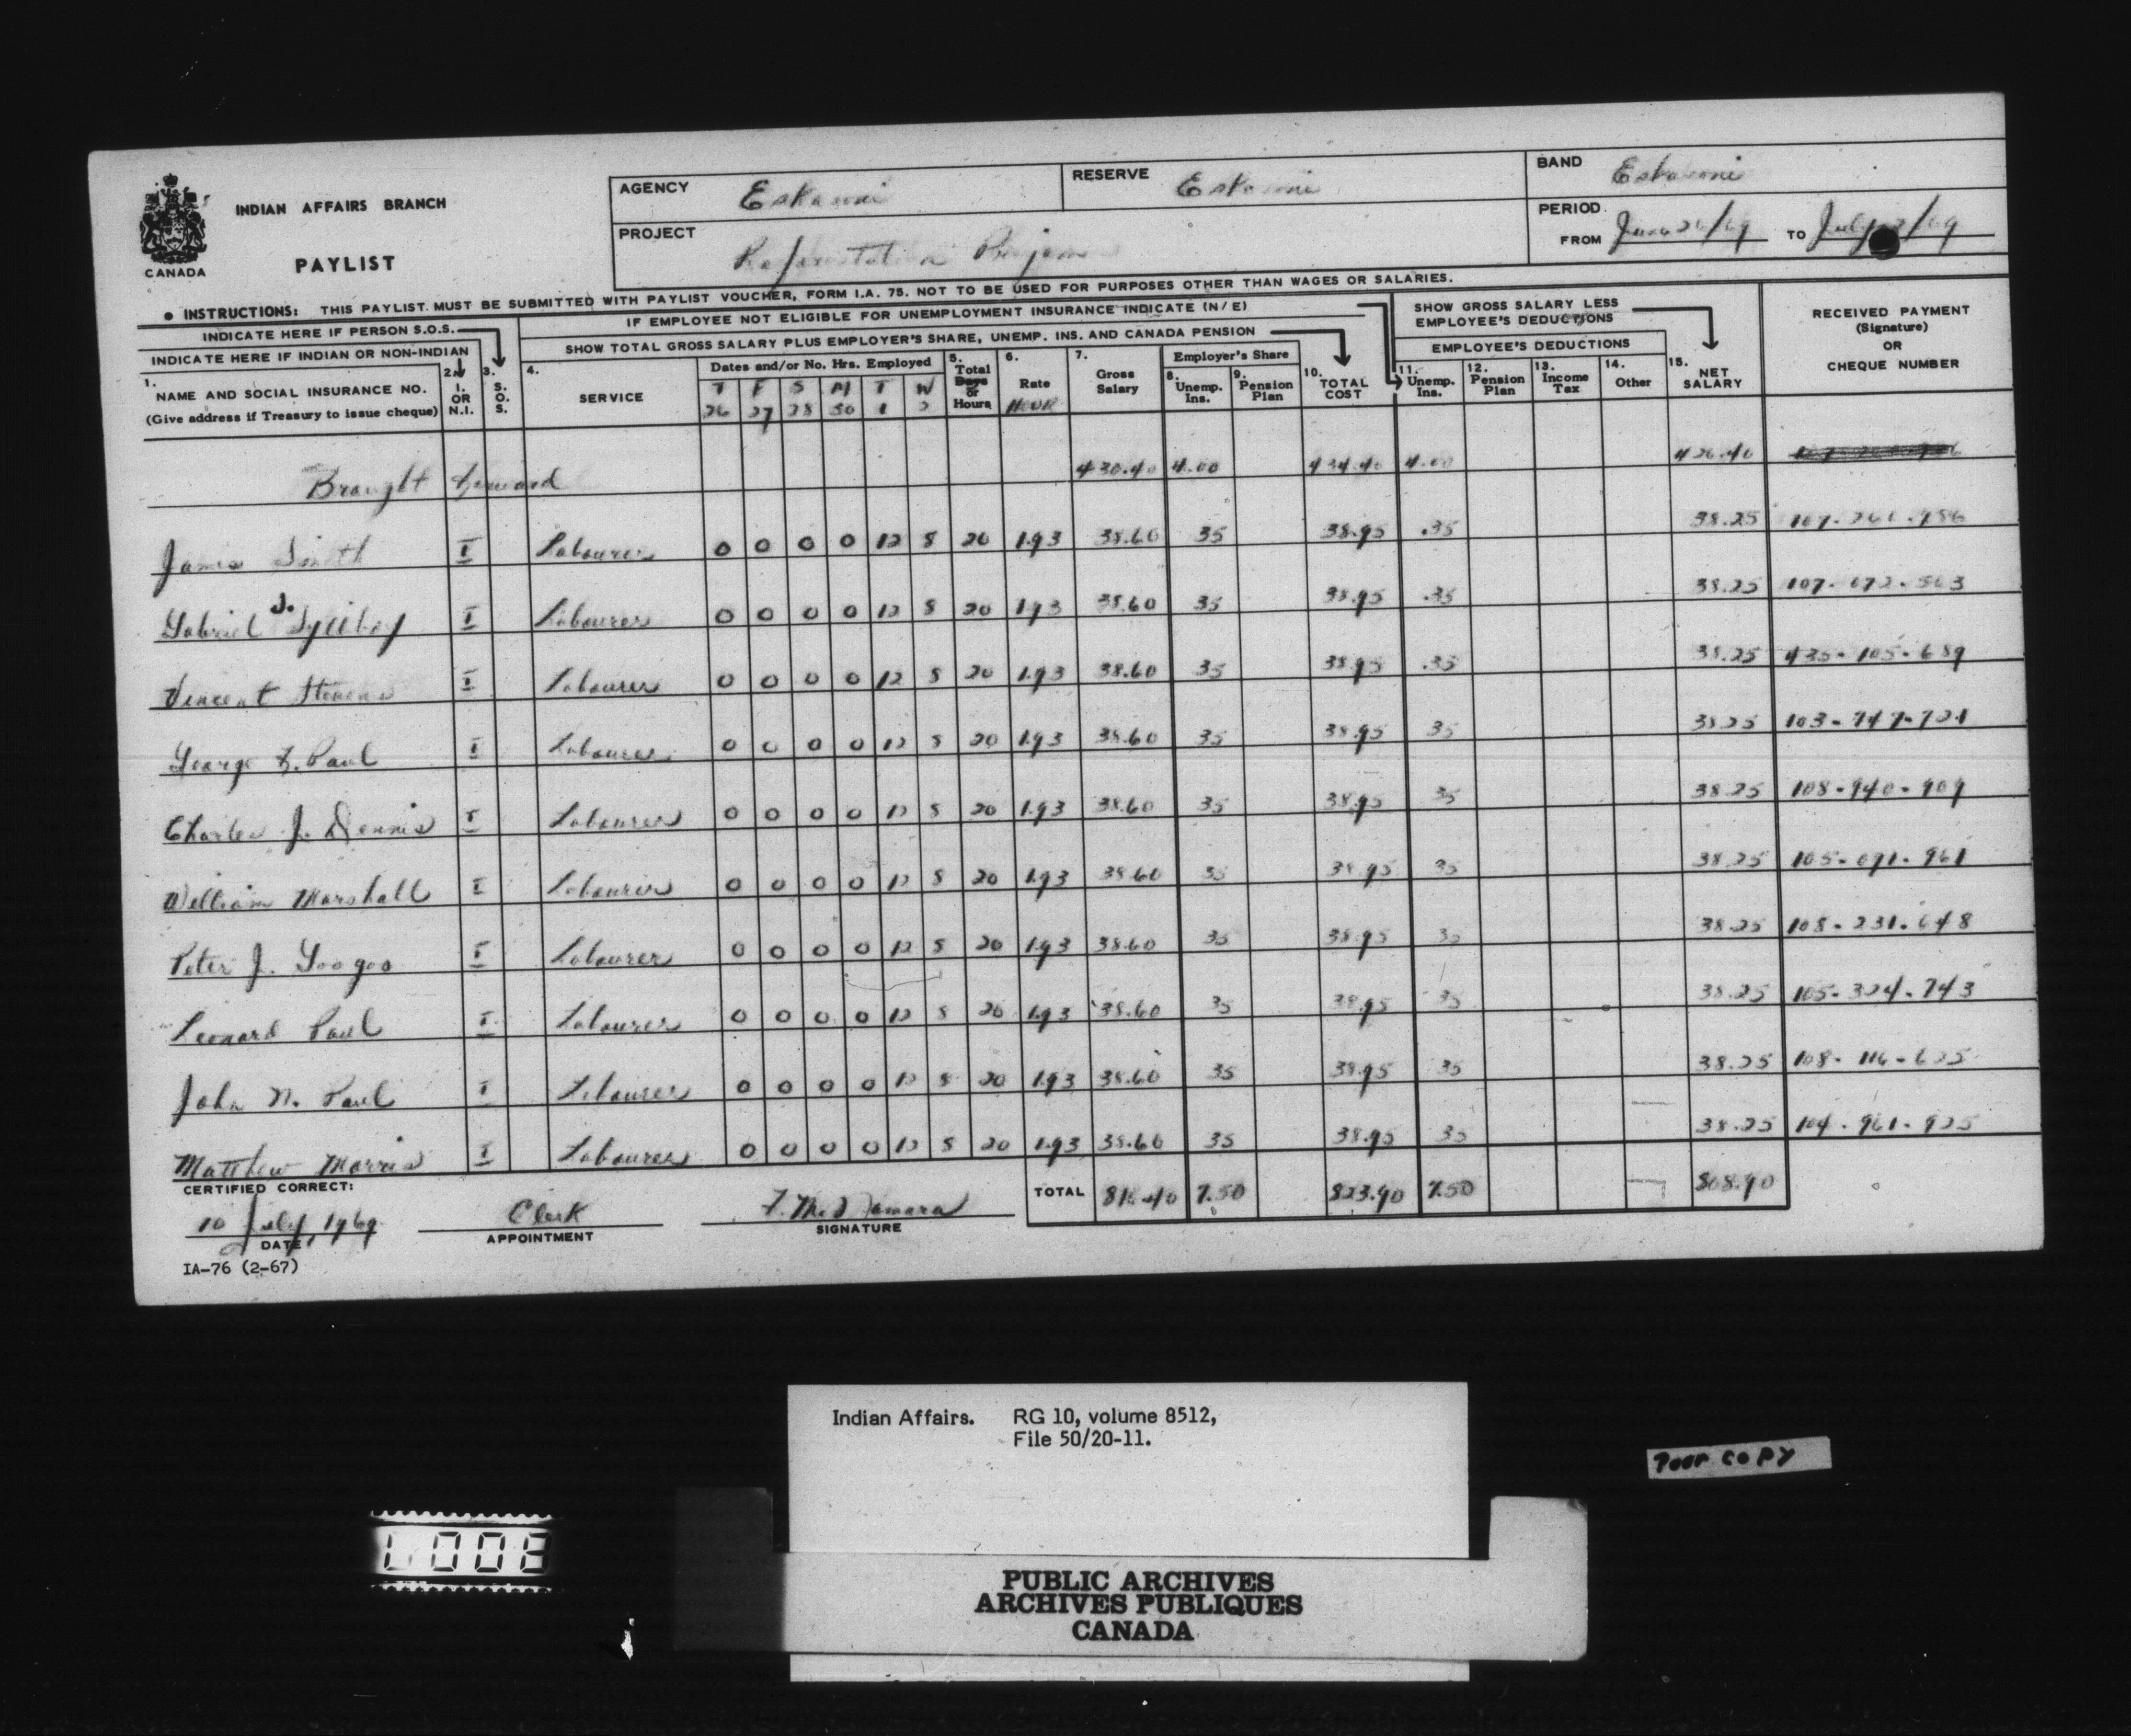 INDIAN AFFAIRS BRANCH
PAYLIST
CANADA
AGENCY Eskasoni
RESERVE Eskasoni
BAND Eskasoni
PROJECT Reforestation
PERIOD FROM June 26/69 TO July 2/69
● INSTRUCTIONS: THIS PAYLIST MUST BE SUBMITTED WITH PAYLIST VOUCHER, FORM I.A. 75. NOT TO BE USED FOR PURPOSES OTHER THAN WAGES OR SALARIES.
INDICATE HERE IF PERSON S.O.S.
IF EMPLOYEE NOT ELIGIBLE FOR UNEMPLOYMENT INSURANCE INDICATE (N/E)
SHOW GROSS SALARY LESS EMPLOYEE'S DEDUCTIONS
RECEIVED PAYMENT (Signature) OR CHEQUE NUMBER
INDICATE HERE IF INDIAN OR NON-INDIAN
SHOW TOTAL GROSS SALARY PLUS EMPLOYER'S SHARE, UNEMP. INS. AND CANADA PENSION
EMPLOYEE'S DEDUCTIONS
1. NAME AND SOCIAL INSURANCE NO. (Give address if Treasury to issue cheque)
2. I. OR N.I.
3. S. O. S.
4. SERVICE
Dates and/or No. Hrs. Employed
T F S M T W
26 27 28 30 1 2
5. Total Days or Hours
6. Rate HOUR
7. Gross Salary
Employer's Share
8. Unemp. Ins.
9. Pension Plan
10. TOTAL COST
11. Unemp. Ins.
12. Pension Plan
13. Income Tax
14. Other
15. NET SALARY
Brought forward 430.40 4.00 434.40 4.00 426.40
James Smith I Labourer 0 0 0 0 12 8 20 1.93 38.60 35 38.95 .35 38.25 107-261-986
Gabriel J. Sylliboy I Labourer 0 0 0 0 12 8 20 1.93 38.60 35 38.95 .35 38.25 107-072-563
Vincent Stevens I Labourer 0 0 0 0 12 8 20 1.93 38.60 35 38.95 .35 38.25 435-105-689
George F. Paul I Labourer 0 0 0 0 12 8 20 1.93 38.60 35 38.95 35 38.25 103-747-721
Charles J. Dennis I Labourer 0 0 0 0 12 8 20 1.93 38.60 35 38.95 35 38.25 108-940-909
William Marshall I Labourer 0 0 0 0 12 8 20 1.93 38.60 35 38.95 35 38.25 105-091-961
Peter J. Googoo I Labourer 0 0 0 0 12 8 20 1.93 38.60 35 38.95 35 38.25 108-231-648
Leonard Paul I Labourer 0 0 0 0 12 8 20 1.93 38.60 35 38.95 35 38.25 105-324-743
John N. Paul I Labourer 0 0 0 0 12 8 20 1.93 38.60 35 38.95 35 38.25 108-116-625
Matthew Morris I Labourer 0 0 0 0 12 8 20 1.93 38.60 35 38.95 35 38.25 104-961-925
CERTIFIED CORRECT:
TOTAL 816.40 7.50 823.90 7.50 808.90
10 July, 1969 Clerk
DATE APPOINTMENT SIGNATURE
IA-76 (2-67)
Indian Affairs. RG 10, volume 8512,
File 50/20-11.
Poor copy
PUBLIC ARCHIVES
ARCHIVES PUBLIQUES
CANADA